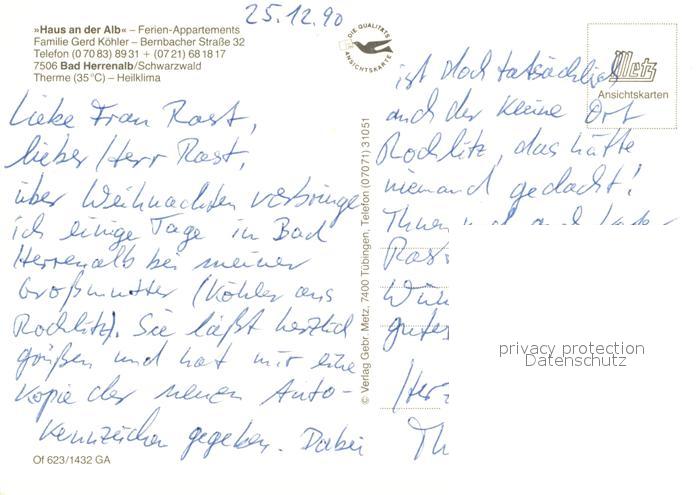 25.12.90
»Haus an der Alb« – Ferien-Appartements
Familie Gerd Köhler – Bernbacher Straße 32
Telefon (0 70 83) 89 31 + (07 21) 68 18 17
7506 Bad Herrenalb/Schwarzwald
Therme (35 °C) – Heilklima
Liebe Frau Rast,
lieber Herr Rast,
über Weihnachten verbringe
ich einige Tage in Bad
Herrenalb bei meiner
Großmutter (Köhler aus
Rochlitz). Sie läßt herzlich
grüßen und hat mir eine
Kopie der neuen Auto-
kennzeichen gegeben. Dabei
Of 623/1432 GA
© Verlag Gebr. Metz, 7400 Tübingen, Telefon (07071) 31051
DIE QUALITÄTS
ANSICHTSKARTE
Metz
Ansichtskarten
ist doch tatsächlich
auch der kleine Ort
Rochlitz, das hätte
niemand gedacht!
Ihnen und
Ras
Wün
gutes
Her
Ih
privacy protection
Datenschutz